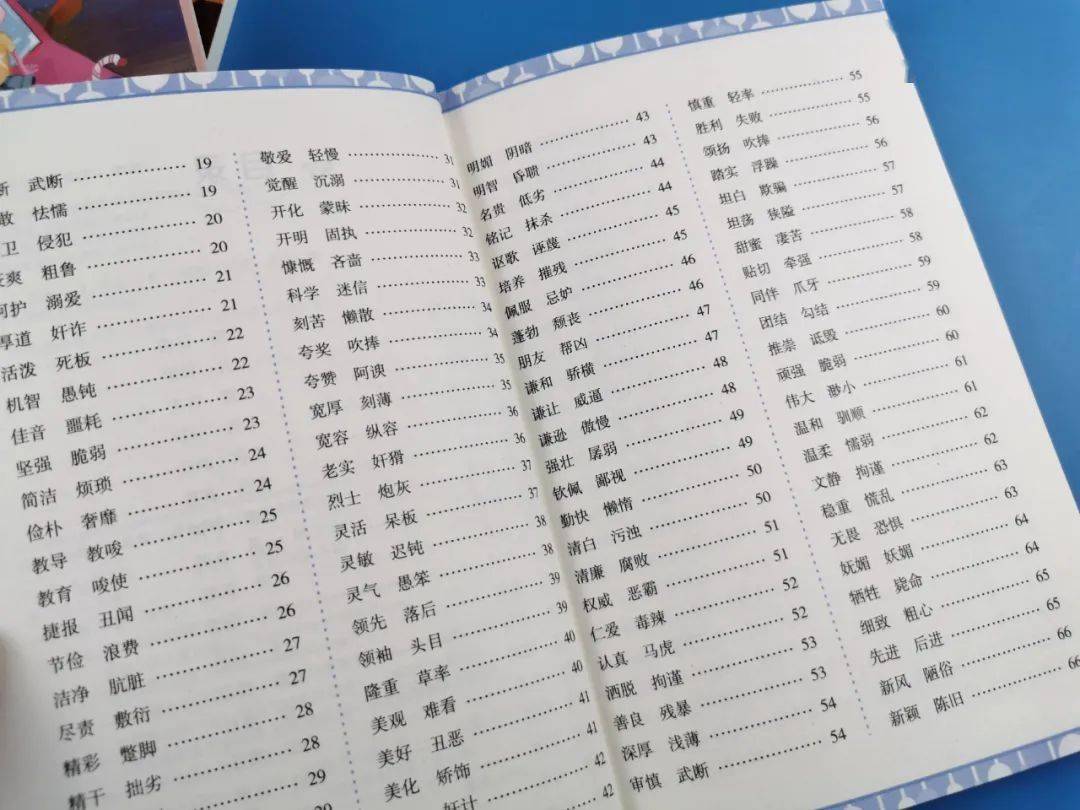 武断 19
敢 怯懦 19
卫 侵犯 20
爽 粗鲁 20
呵护 溺爱 21
厚道 奸诈 21
活泼 死板 22
机智 愚钝 22
佳音 噩耗 23
坚强 脆弱 23
简洁 烦琐 24
俭朴 奢靡 24
教导 教唆 25
教育 唆使 25
捷报 丑闻 26
节俭 浪费 26
洁净 肮脏 27
尽责 敷衍 27
精彩 蹩脚 28
精干 拙劣 28
29
敬爱 轻慢 31
觉醒 沉溺 31
开化 蒙昧 32
开明 固执 32
慷慨 吝啬 33
科学 迷信 33
刻苦 懒散 34
夸奖 吹捧 34
夸赞 阿谀 35
宽厚 刻薄 35
宽容 纵容 36
老实 奸猾 36
烈士 炮灰 37
灵活 呆板 37
灵敏 迟钝 38
灵气 愚笨 38
领先 落后 39
领袖 头目 39
隆重 草率 40
美观 难看 40
美好 丑恶 41
美化 矫饰 41
奸计 42
明媚 阴暗 43
明智 昏聩 43
名贵 低劣 44
铭记 抹杀 44
讴歌 诬蔑 45
培养 摧残 45
佩服 忌妒 46
蓬勃 颓丧 46
朋友 帮凶 47
谦和 骄横 47
谦让 威逼 48
谦逊 傲慢 48
强壮 孱弱 49
钦佩 鄙视 49
勤快 懒惰 50
清白 污浊 50
清廉 腐败 51
权威 恶霸 51
仁爱 毒辣 52
认真 马虎 52
洒脱 拘谨 53
善良 残暴 53
深厚 浅薄 54
审慎 武断 54
慎重 轻率 55
胜利 失败 55
颂扬 吹捧 56
踏实 浮躁 56
坦白 欺骗 57
坦荡 狭隘 57
甜蜜 凄苦 58
贴切 牵强 58
同伴 爪牙 59
团结 勾结 59
推崇 诋毁 60
顽强 脆弱 60
伟大 渺小 61
温和 驯顺 61
温柔 懦弱 62
文静 拘谨 62
稳重 慌乱 63
无畏 恐惧 63
妩媚 妖媚 64
牺牲 毙命 64
细致 粗心 65
先进 后进 65
新风 陋俗 66
新颖 陈旧 66